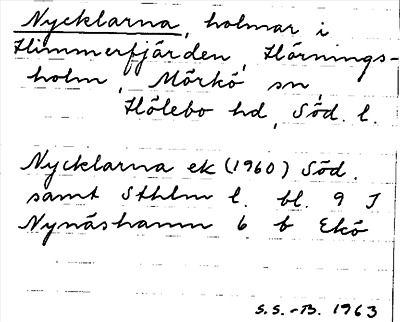 Nycklarna, holmar i
Himmerfjärden, Hörnings-
holm, Mörkö sn,
Hölebo hd, Söd. l.
Nycklarna ek (1960) Söd.
samt Sthlm l. bl. 9 I
Nynäshamn 6 b Ekö
S.S.-B. 1963